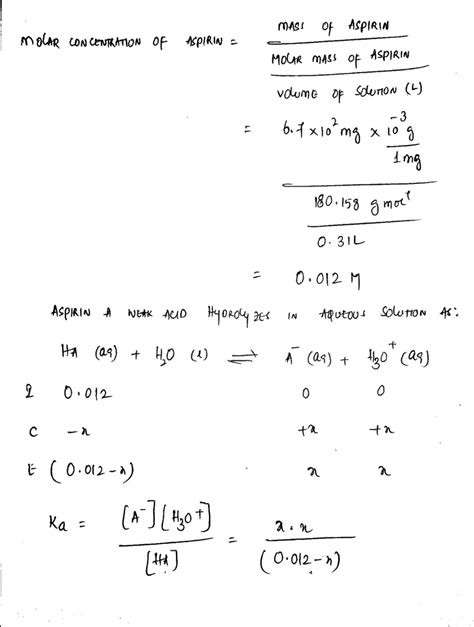 MASS OF ASPIRIN
MOLAR CONCENTRATION OF ASPIRIN =
MOLAR MASS OF ASPIRIN
VOLUME OF SOLUTION (L)
= 6.7 × 10² mg × 10⁻³ g
1 mg
180.158 g mol⁻¹
0.31L
= 0.012 M
ASPIRIN A WEAK ACID HYDROLYZES IN AQUEOUS SOLUTION AS:
HA (aq) + H₂O (l) ⇌ A⁻ (aq) + H₃O⁺ (aq)
I 0.012 0 0
C -x +x +x
E (0.012-x) x x
Ka = [A⁻][H₃O⁺] = x.x
[HA] (0.012-x)